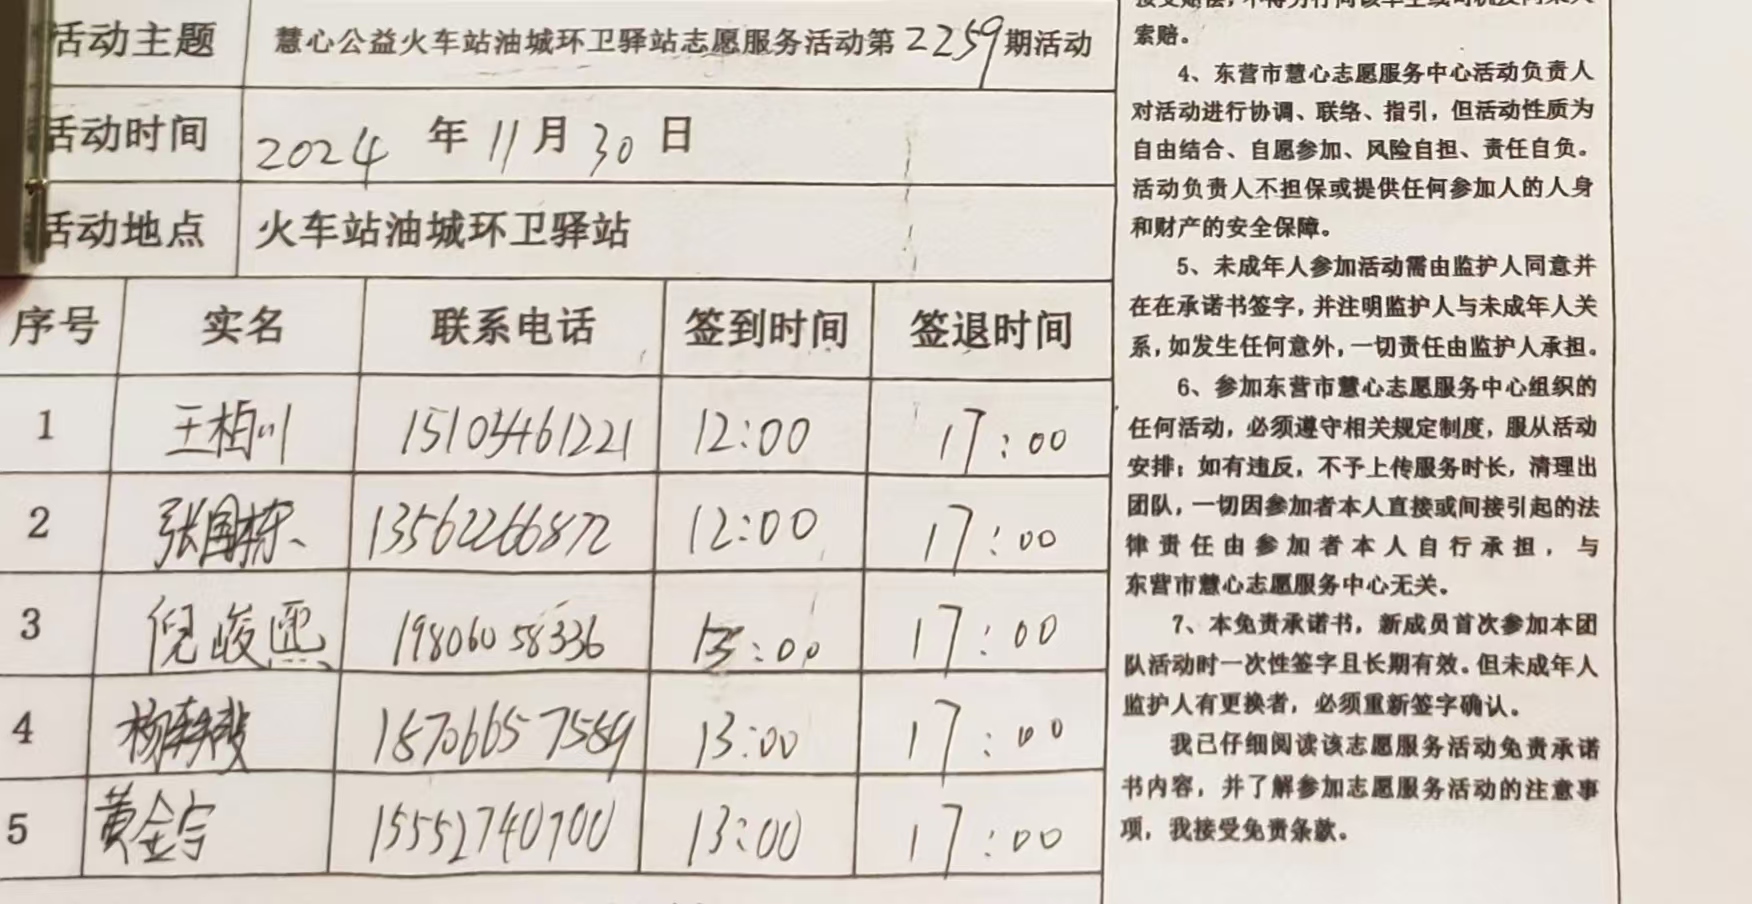 活动主题 慧心公益火车站油城环卫驿站志愿服务活动第2259期活动
活动时间 2024 年 11 月 30 日
活动地点 火车站油城环卫驿站
序号 实名 联系电话 签到时间 签退时间
1 王柏川 15103461221 12:00 17:00
2 张国栋 13562266872 12:00 17:00
3 倪峻熙 19806058336 13:00 17:00
4 杨 18706657589 13:00 17:00
5 黄金宁 15552740700 13:00 17:00
索赔。
4、东营市慧心志愿服务中心活动负责人
对活动进行协调、联络、指引，但活动性质为
自由结合、自愿参加、风险自担、责任自负。
活动负责人不担保或提供任何参加人的人身
和财产的安全保障。
5、未成年人参加活动需由监护人同意并
在在承诺书签字，并注明监护人与未成年人关
系，如发生任何意外，一切责任由监护人承担。
6、参加东营市慧心志愿服务中心组织的
任何活动，必须遵守相关规定制度，服从活动
安排；如有违反，不予上传服务时长，清理出
团队，一切因参加者本人直接或间接引起的法
律责任由参加者本人自行承担，与
东营市慧心志愿服务中心无关。
7、本免责承诺书，新成员首次参加本团
队活动时一次性签字且长期有效。但未成年人
监护人有更换者，必须重新签字确认。
我已仔细阅读该志愿服务活动免责承诺
书内容，并了解参加志愿服务活动的注意事
项，我接受免责条款。